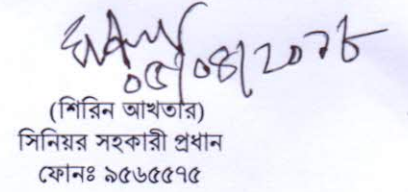 ০৫/০৪/২০১৮
(শিরিন আখতার)
সিনিয়র সহকারী প্রধান
ফোনঃ ৯৫৬৫৫৭৫